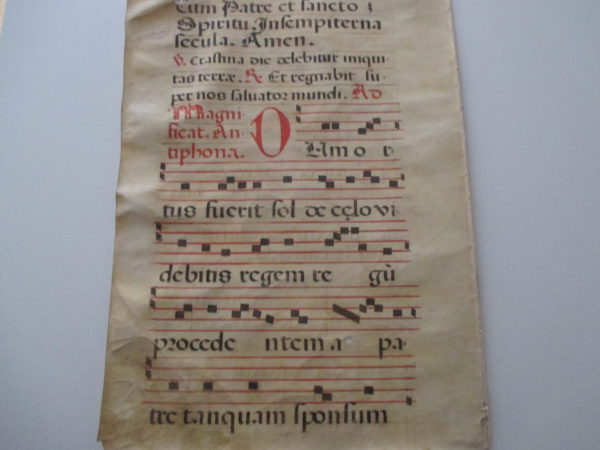 Cum Patre et sancto ;
Spiritu. In sempiterna
secula. Amen.
V. Crastina die delebitur iniqui
tas terræ. R. Et regnabit su-
per nos salvator mundi. Ad
Magni-
ficat. An-
tiphona. DUm o r-
tus fuerit sol de cęlo vi
debitis regem re gū
procede ntem a pa-
tre tanquam sponsum